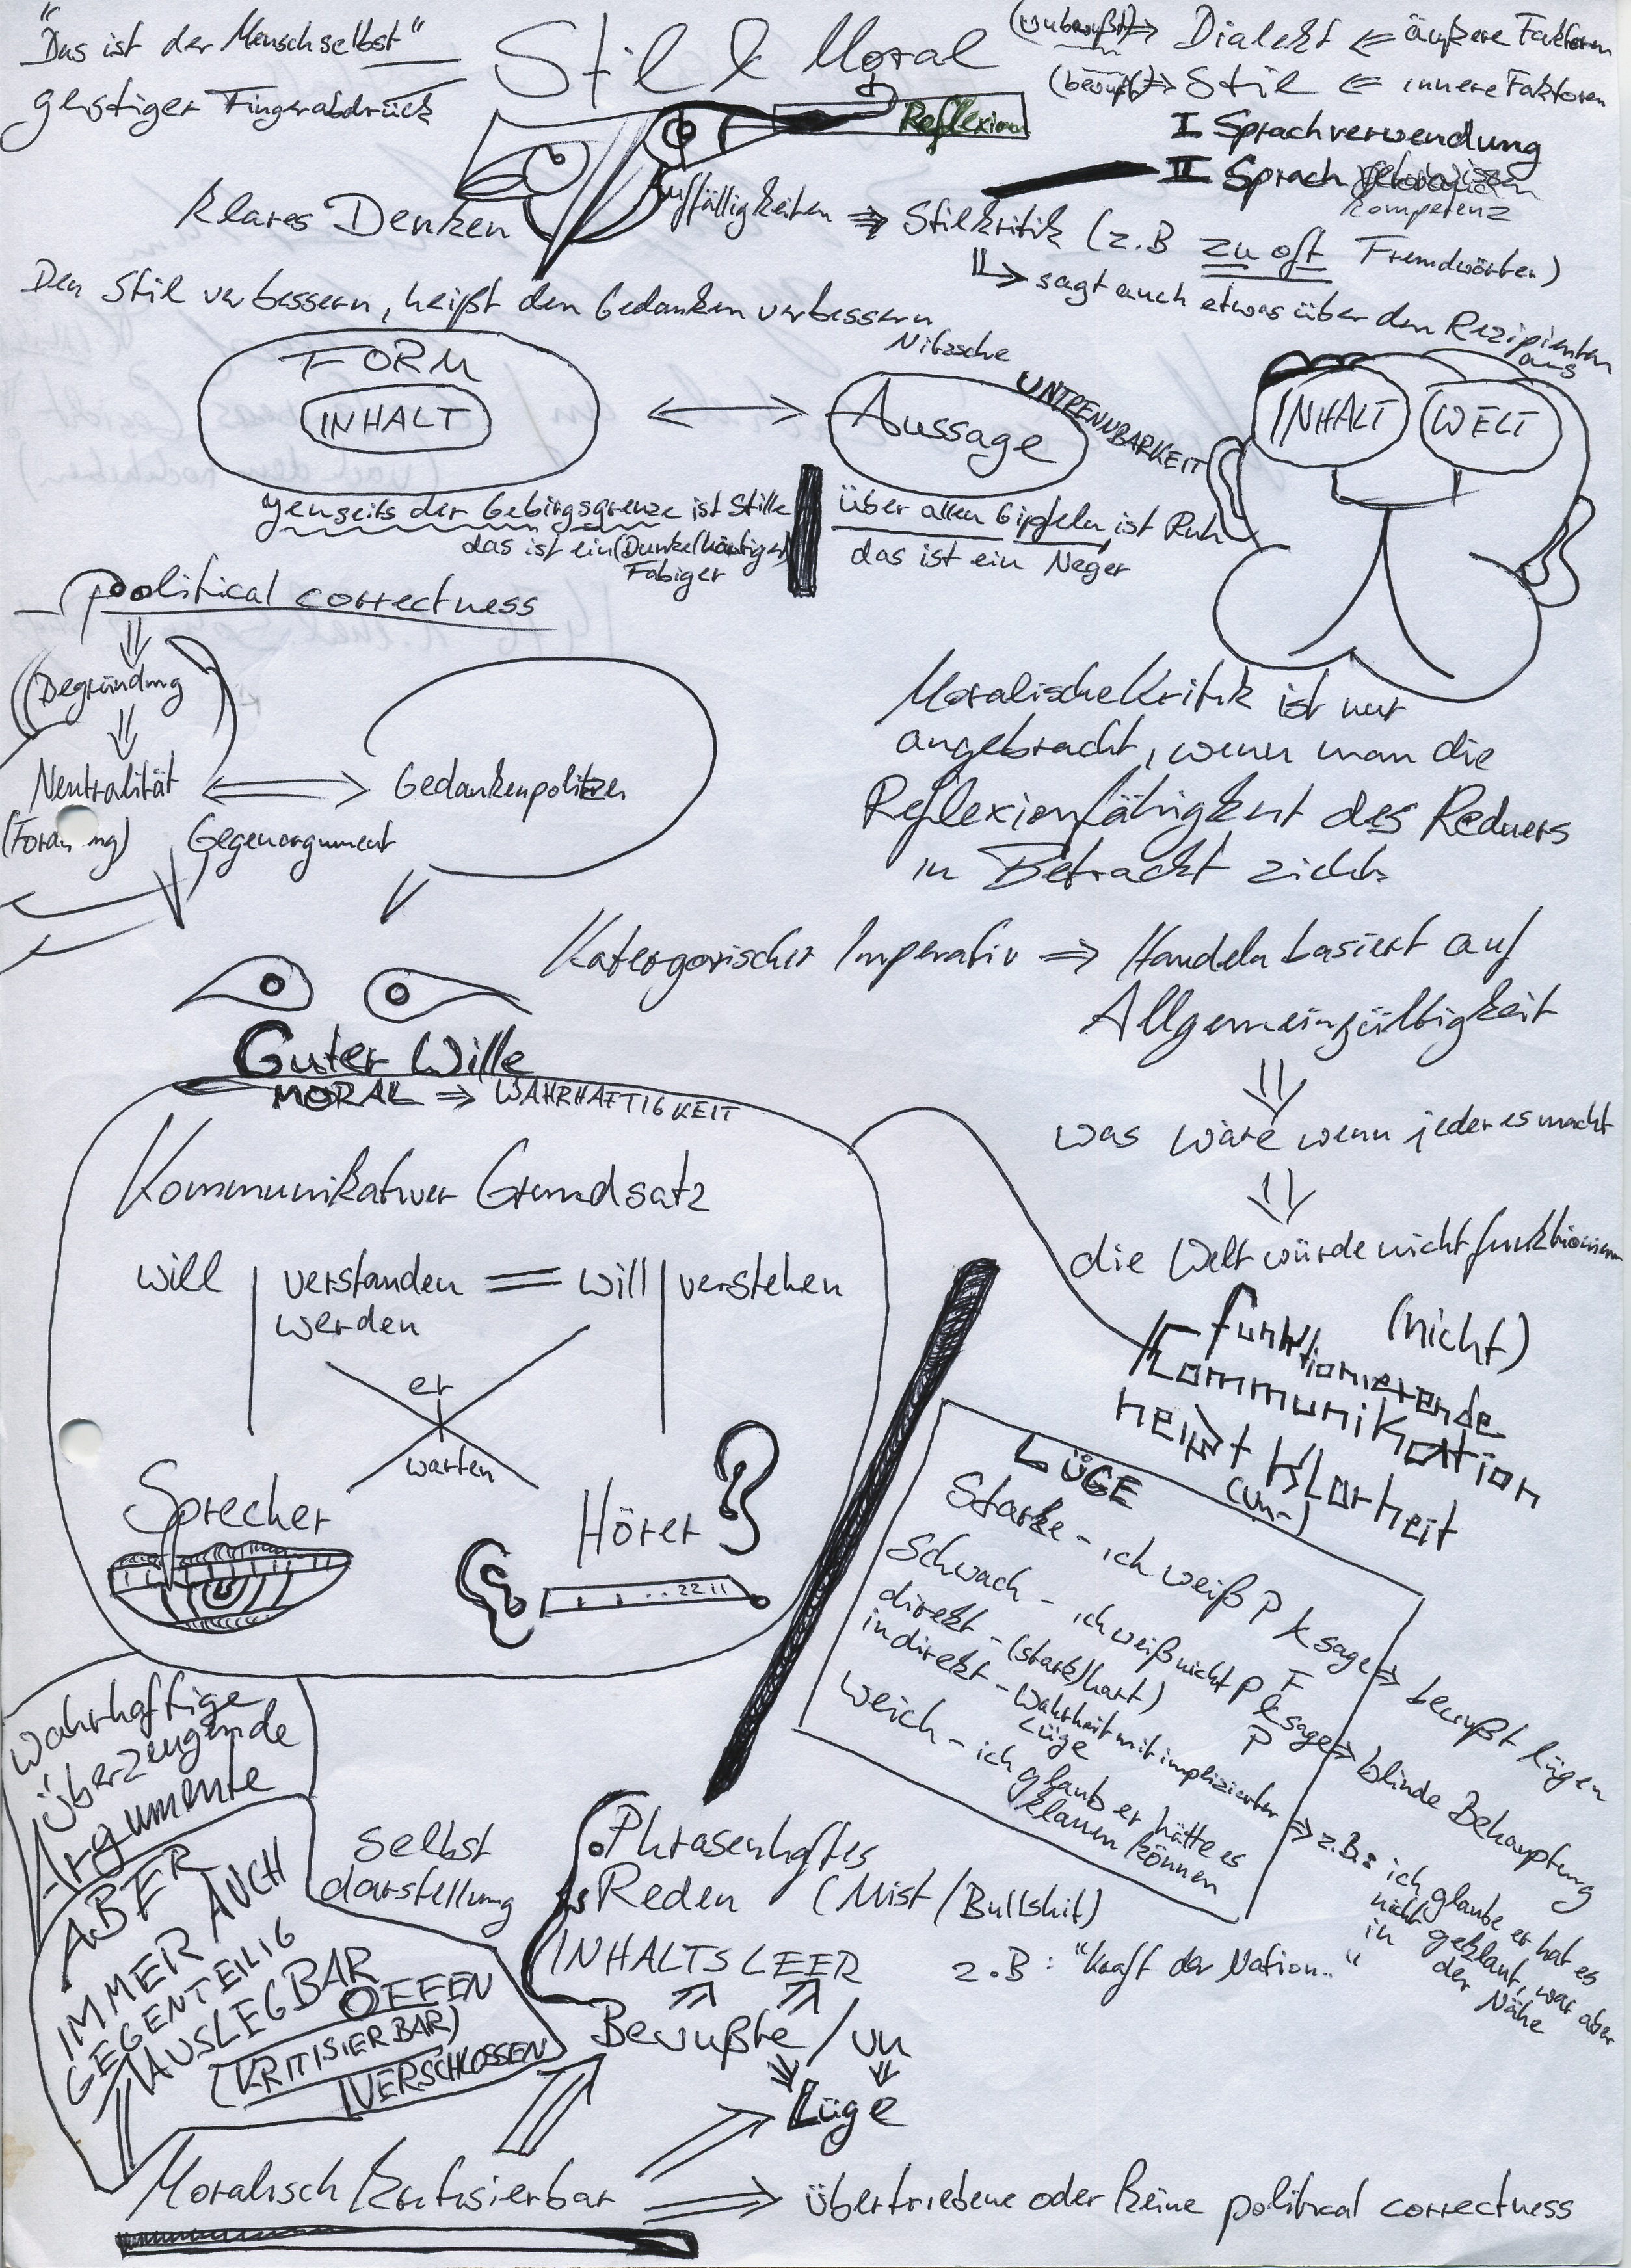 "Das ist der Mensch selbst"
geistiger Fingerabdrück
Stil & Moral
Reflexion
(unbewußt) ⇒ Dialekt ⇐ äußere Faktoren
(bewußt) ⇒ Stil ⇐ innere Faktoren
I Sprachverwendung
II Sprach
kompetenz
Klares Denken
Auffälligkeiten ⇒ Stilkritik (z.B zu oft Fremdwörter)
↳ sagt auch etwas über den Rezipienten
aus
Den Stil verbessern, heißt den Gedanken verbessern
Nitzsche
FORM
INHALT
Aussage
UNTRENNBARKEIT
INHALT
WELT
jenseits der Gebirgsgrenze ist Stille
über allen Gipfeln ist Ruh
das ist ein (Dunkelhäutiger)
Fabiger
das ist ein Neger
political correctness
Begründung
Neutralität
Gedankenpolizei
Gegenargument
Moralische Kritik ist nur
angebracht, wenn man die
Reflexionfähigkeit des Redners
in Betracht zieht
Katergorischer Imperativ ⇒ Handeln basiert auf
Allgemeingültigkeit
was wäre wenn jeder es macht
die Welt würde nicht funktionieren
Guter Wille
MORAL ⇒ WAHRHAFTIGKEIT
Kommunikativer Grundsatz
will | verstanden = will | verstehen
werden
er
warten
Sprecher
Hörer
funktionierende (nicht)
Kommunikation
heißt Klarheit
(un-)
LÜGE
Starke - ich weiß P & sage ⇒ bewußt lügen
F
Schwach - ich weiß nicht P & sage ⇒ blinde Behauptung
P
direkt - (stark) hart)
indirekt - Wahrheit mit implizierter ⇒ z.B: ich glaube er hat es
Lüge
nicht geklaut, war aber
in der Nähe
weich - ich glaub er hätte es
klauen können
wahrhaftige
überzeugende
Argumente
ABER
IMMER AUCH
GEGENTEILIG
AUSLEGBAR
OFFEN
(KRITISIERBAR)
VERSCHLOSSEN
Selbst
darstellung
Phrasenhaftes
Reden (Mist/Bullshit)
INHALTSLEER
z.B: "Kraft der Nation.."
Bewußte / un
Lüge
Moralisch Kritisierbar
übertriebene oder keine political correctness